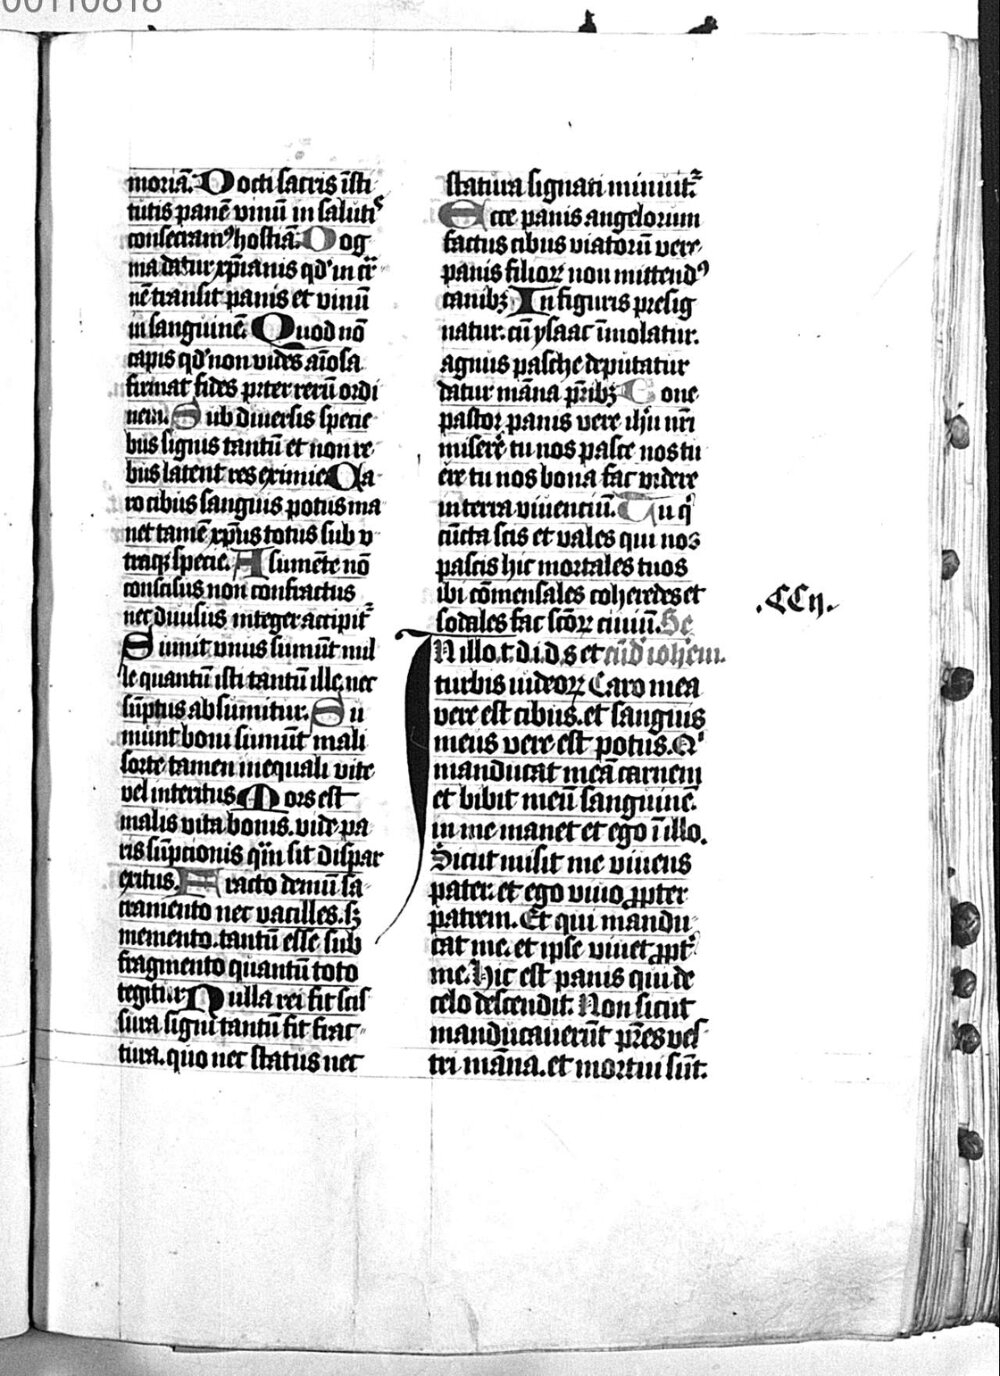 00110818
moriā. Docti sacris īsti
tutis panē vinū in saluti᷒
consecram⁹ hostiā. Dog
ma datur xp̄ianis qd' in cr̄
nē transit panis et vinū
in sanguinē. Quod nō
capis qd' non vides aīosa
firmat fides preter rerū ordi
nem. Sub diuersis specie
bus signis tantū et non re
bus latent res eximie Ca
ro cibus sanguis potus ma
net tamē xp̄us totus sub v
traqꝫ specie. A sumēte nō
conscisus non confractus
nec diuisus integer accipit᷑
Sumit vnus sumūt mil
le quantū isti tantū ille nec
sūptus absumitur. Su
munt boni sumūt mali
sorte tamen inequali vite
vel interitus Mors est
malis vita bonis. vide pa
ris sūpcionis qȝ̄ sit dispar
exitus. Fracto demū sa
cramento nec vacilles. sꝫ
memento. tantū esse sub
fragmento quantū toto
tegitur Nulla rei fit scis
sura signi tantū fit frac
tura. quo nec status nec
statura signati minuit᷑
Ecce panis angelorum
factus cibus viatorū vere
panis filioꝝ non mittend⁹
canibꝫ In figuris presig
natur. cū ysaac īmolatur.
agnus pasche deputatur
datur māna pr̄ibꝫ Bone
pastor panis vere ih̄u nr̄i
miserē tu nos pasce nos tu
ēre tu nos bona fac videre
in terra viuenciū. Tu q'
cūcta scis et vales qui nos
pascis hic mortales tuos
ibi cōmensales coheredes et
sodales fac scōꝝ ciuiū. Se
.CCij.
IN illo. t. d. i. d. s. et cūd iohem.
turbis iudeoꝝ Caro mea
vere est cibus. et sanguis
meus vere est potus. Qⁱ
manducat meā carnem
et bibit meū sanguinē.
in me manet et ego ī illo.
Sicut misit me viuens
pater. et ego viuo ꝓpter
patrem. Et qui mandu
cat me. et ipse viuet ꝓpt᷑
me. Hic est panis qui de
celo descendit. Non sicut
manducauerūt pr̄es ves
tri māna. et mortui sūt.